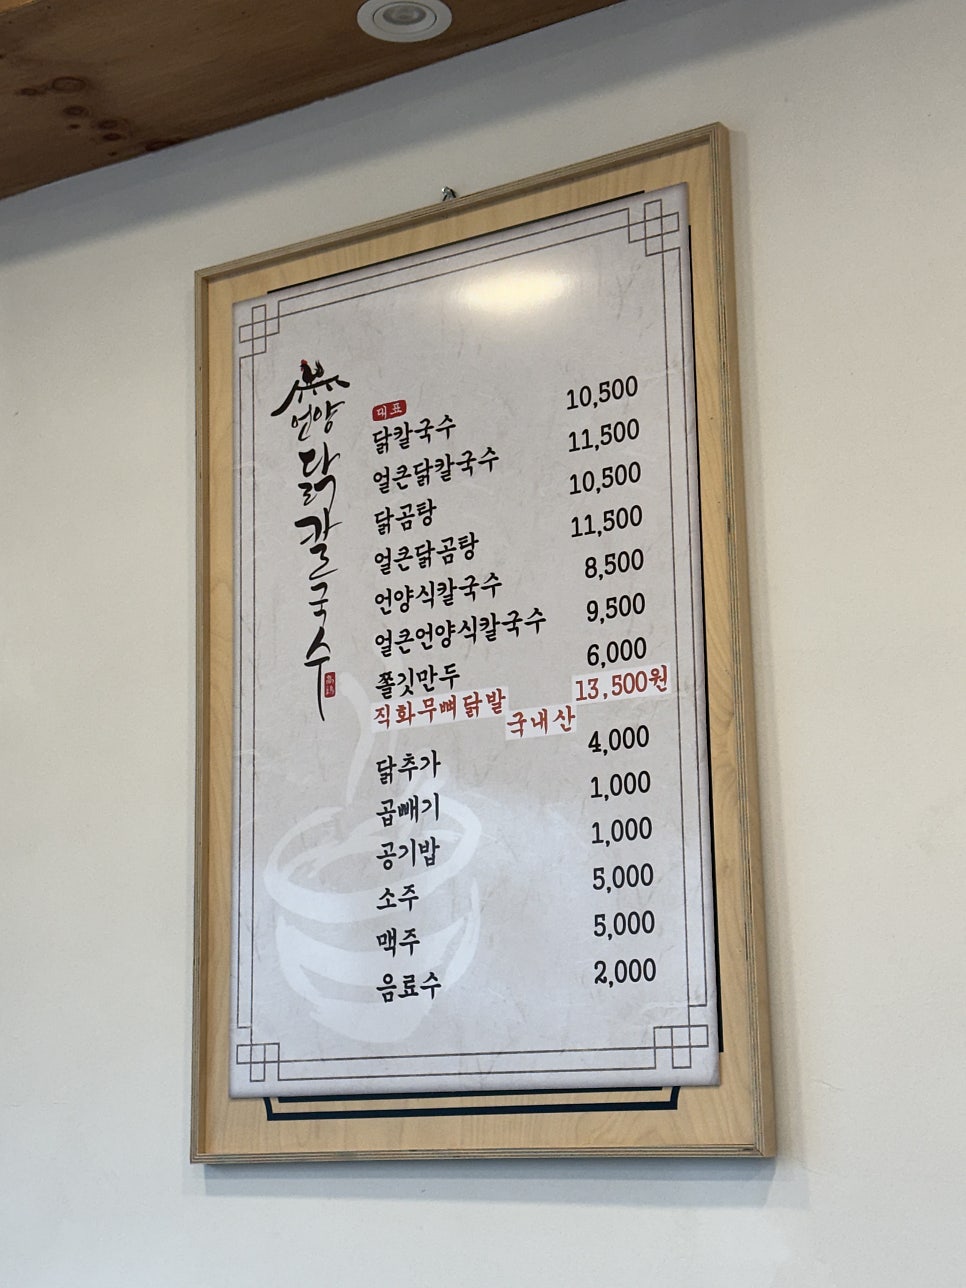 언양
닭칼국수
대표
닭칼국수 10,500
얼큰닭칼국수 11,500
닭곰탕 10,500
얼큰닭곰탕 11,500
언양식칼국수 8,500
얼큰언양식칼국수 9,500
쫄깃만두 6,000
직화무뼈닭발 국내산 13,500원
닭추가 4,000
곱빼기 1,000
공기밥 1,000
소주 5,000
맥주 5,000
음료수 2,000